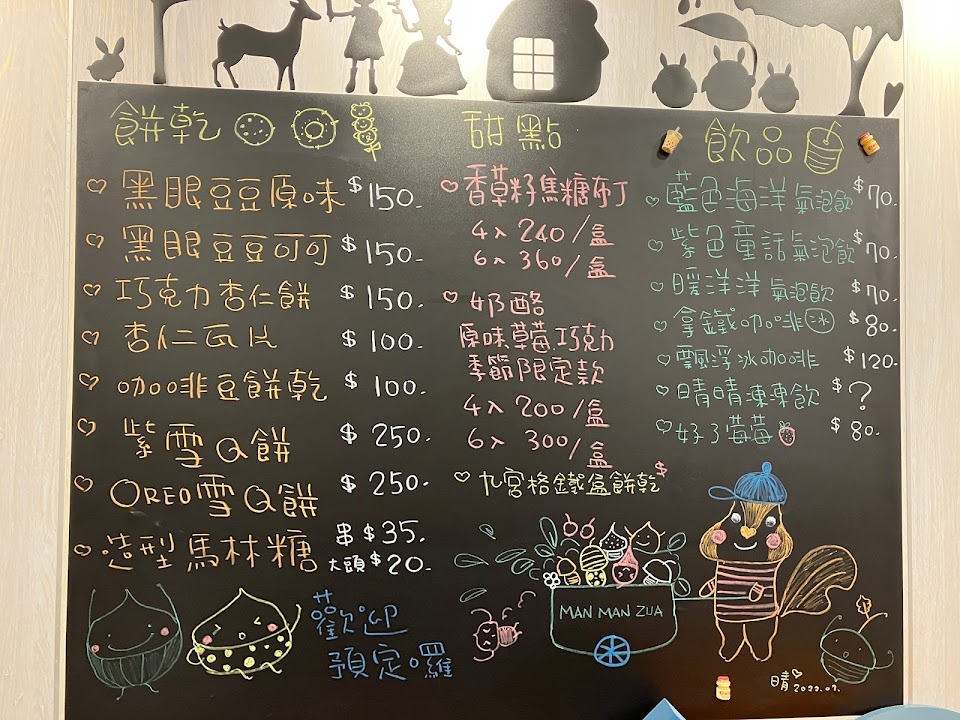 餅乾
黑眼豆豆原味 $150.
黑眼豆豆可可 $150.
巧克力杏仁餅 $150.
杏仁瓦片 $100.
咖啡豆餅乾 $100.
紫雪Q餅 $250.
OREO雪Q餅 $250.
造型馬林糖 串$35.
大頭$20.
歡迎
預定囉
甜點
香草籽焦糖布丁
4入 240/盒
6入 360/盒
奶酪
原味草莓巧克力
季節限定款
4入 200/盒
6入 300/盒
九宮格鐵盒餅乾$
飲品
藍色海洋氣泡飲 $70.
紫色童話氣泡飲 $70.
暖洋洋氣泡飲 $70.
拿鐵咖啡冰 $80.
飄浮冰咖啡 $120.
晴晴凍凍飲 $?
好ㄋ莓莓 $80.
MAN MAN ZUA
晴 2022.07.